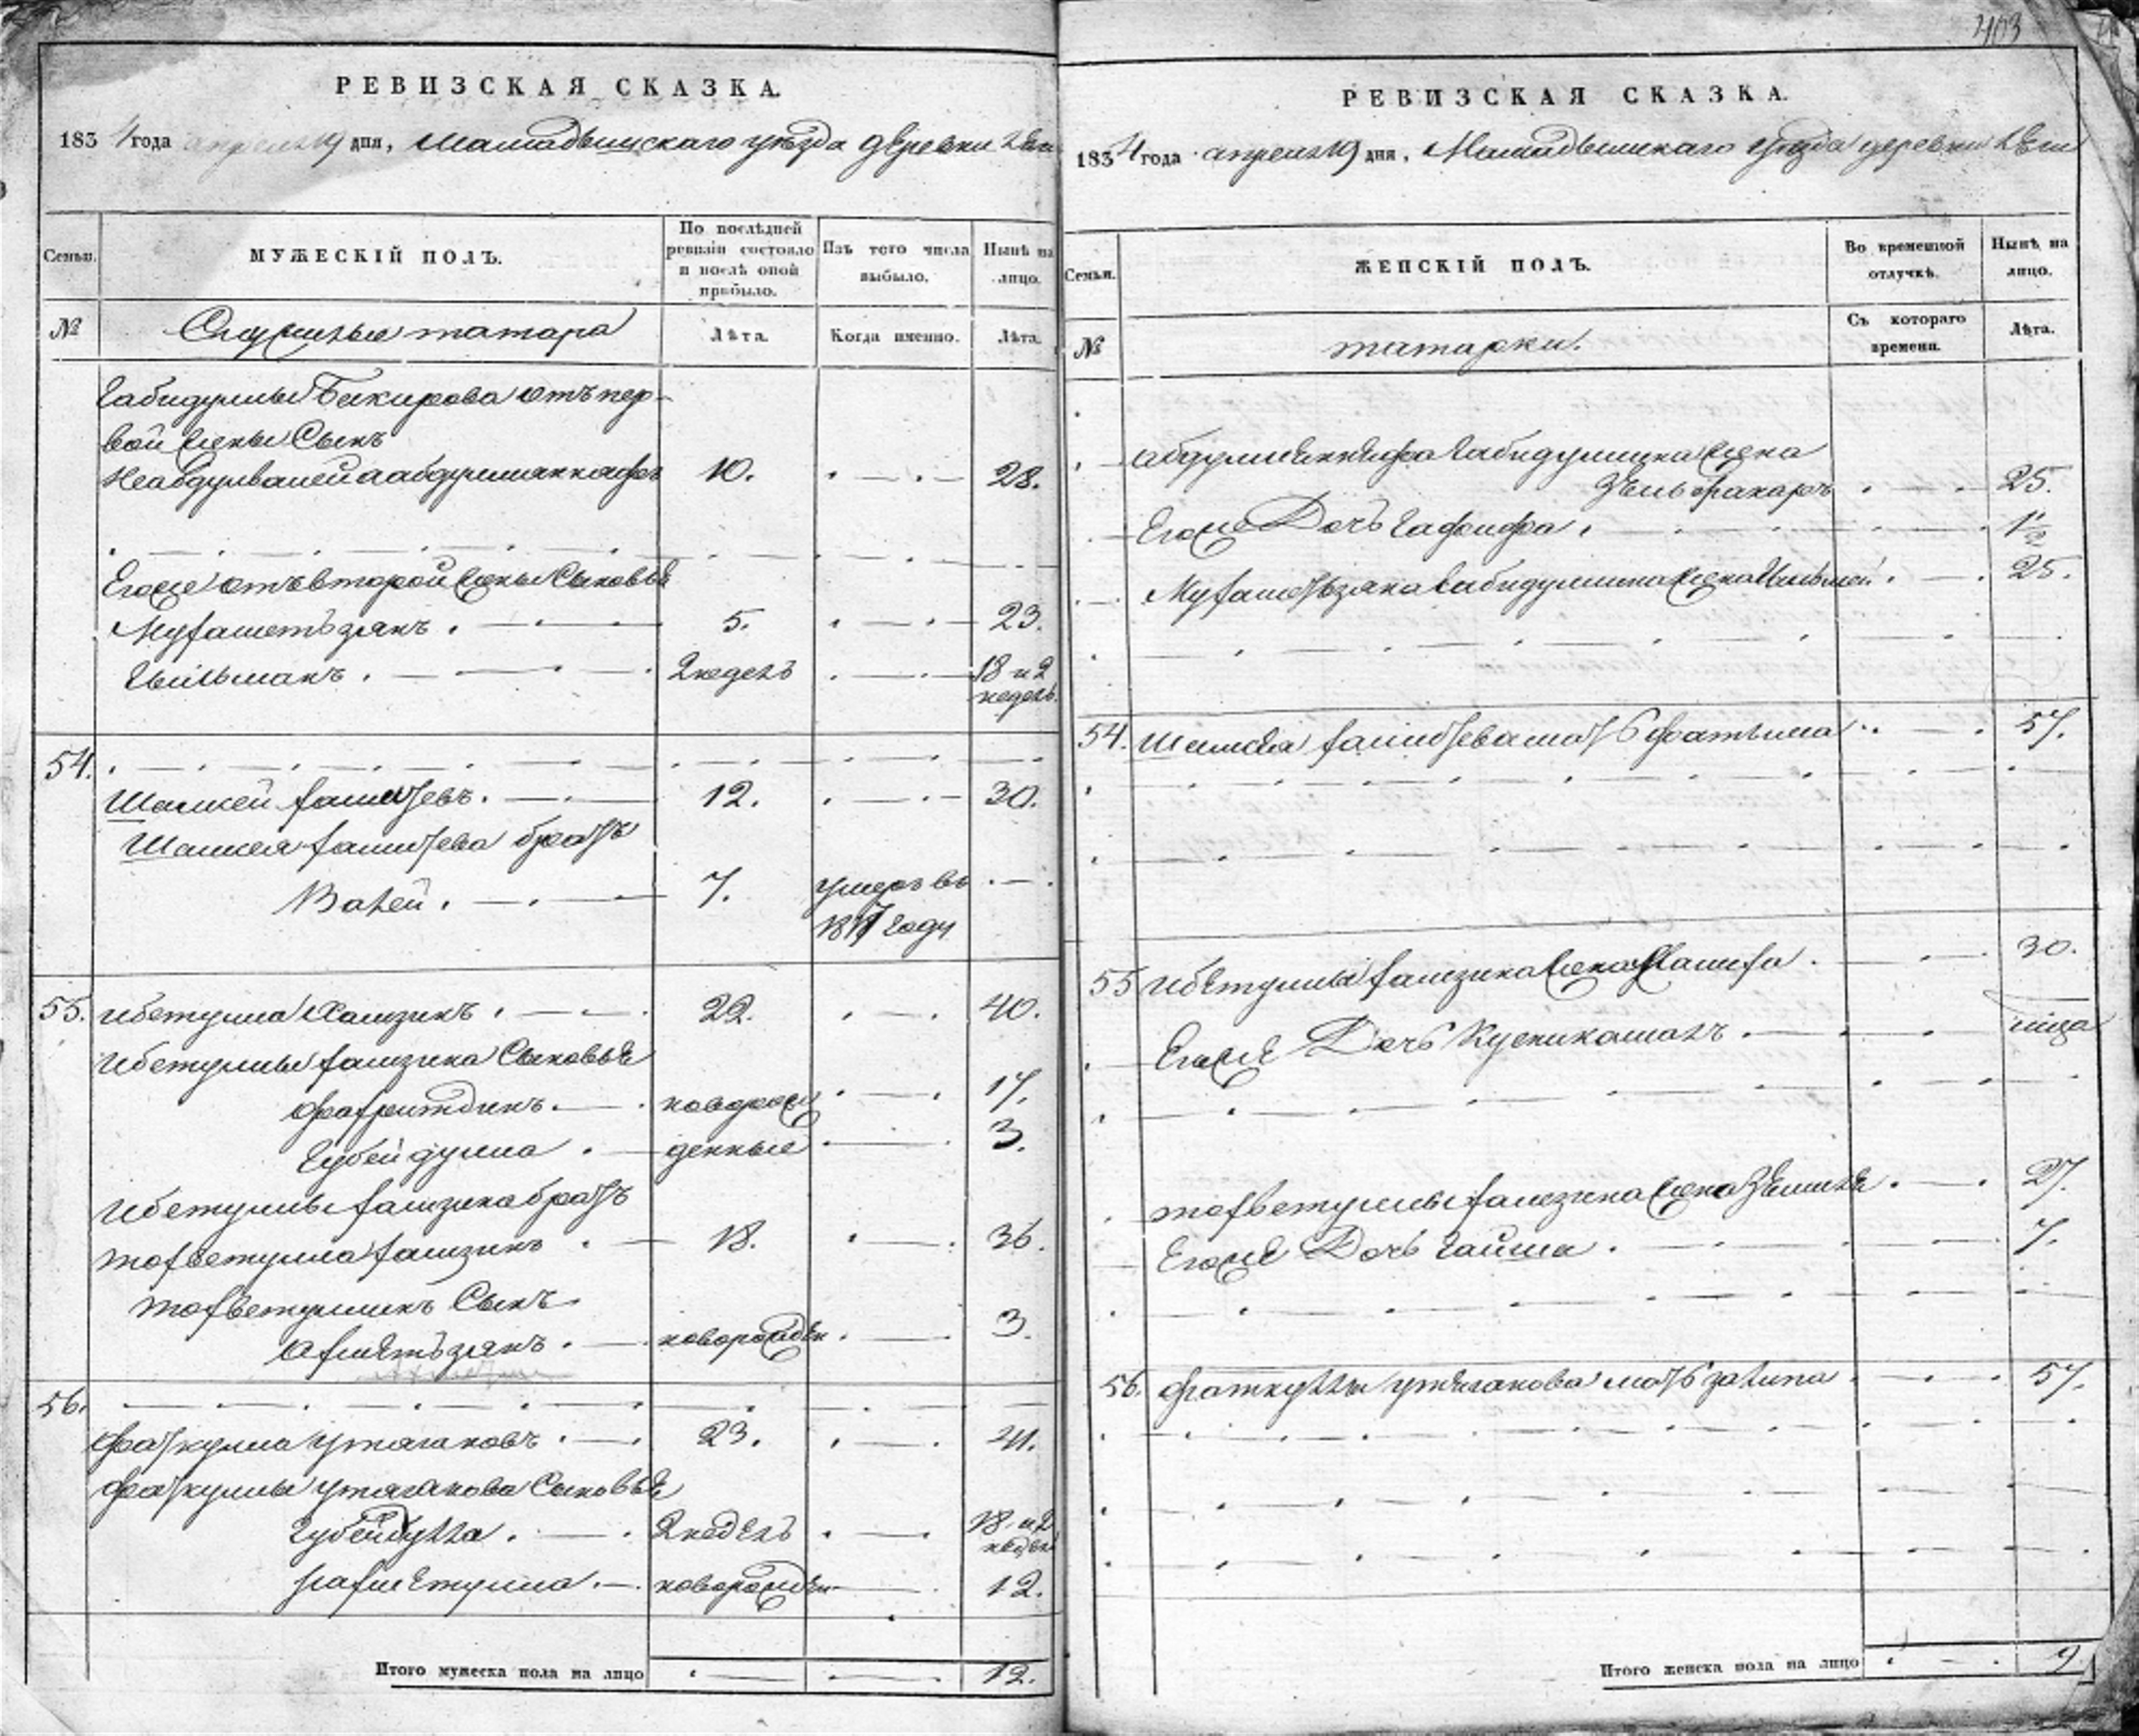 РЕВИЗСКАЯ СКАЗКА.
1834 года апреля 19 дня, Мамадышскаго уѣзда деревни
Семьи.
МУЖЕСКІЙ ПОЛЪ.
По послѣдней ревизіи состояло и послѣ оной прибыло.
Изъ того числа выбыло.
Нынѣ на лицо.
№
Служилые татара
Лѣта.
Когда именно.
Лѣта.
Габидуллы Бикирова отъ пер-
вой жены Сынъ
10. 28.
Егоже отъ второй жены Сыновья
Мухаметьзянъ. 5. 23.
Гильманъ. 2 недель 18 и 2 недель
54.
Шамсей 12. 30.
Шамсея братъ
Валей. 7. умеръ въ 1817 году
55. Ибетулла Хамзинъ. 22. 40.
Ибетуллы Хамзина Сыновья
Фахритдинъ. новорож 17.
Губейдулла. денные 3.
Ибетуллы Хамзина братъ
Тохветулла Хамзинъ 18. 36.
Тохветуллинъ Сынъ
Ахметьзянъ. новорожден 3.
56.
Фаткулла Утягановъ. 23. 41.
Фаткуллы Утяганова Сыновья
Губейдулла. 2 недель 18 и 2 недель
Рахметулла. новорожден 12.
Итого мужеска пола на лицо 12.
403
РЕВИЗСКАЯ СКАЗКА.
1834 года апреля 19 дня, Мамадышскаго уѣзда деревни
Семьи.
ЖЕНСКІЙ ПОЛЪ.
Во временной отлучкѣ.
Нынѣ на лицо.
№
татарки.
Съ котораго времени.
Лѣта.
Габидуллина жена
25.
Егоже Дочь Гафифа. 1 1/2
Мухаметьзяна Габидуллина жена 25.
54. Шамсея мать Фатьима 57.
55 Ибетуллы Хамзина жена 30.
Егоже Дочь
Тохветуллы Хамзина жена 27.
Егоже Дочь Гайша. 7.
56. Фаткуллы Утяганова мать 57.
Итого женска пола на лицо 9